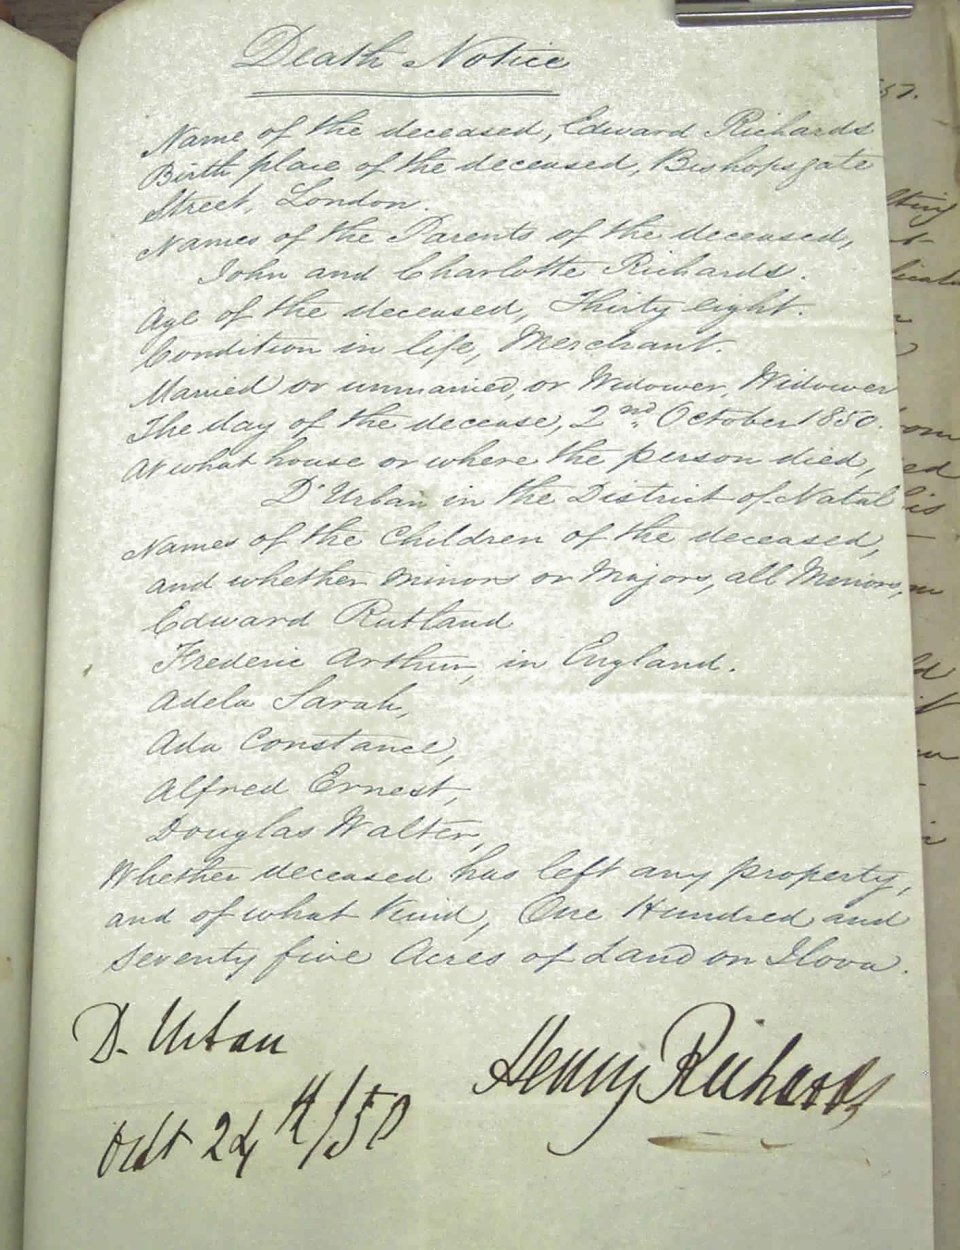 Death Notice
Name of the deceased, Edward Richards
Birth place of the deceased, Bishopsgate
Street, London.
Names of the Parents of the deceased,
John and Charlotte Richards.
Age of the deceased, Thirty eight.
Condition in life, Merchant.
Married or unmarried, or Widower, Widower
The day of the decease, 2nd. October 1850.
At what house or where the person died,
D'Urban in the District of Natal
Names of the Children of the deceased,
and whether Minors or Majors, all Minors,
Edward Rutland
Frederic Arthur, in England.
Adela Sarah,
Ada Constance,
Alfred Ernest,
Douglas Walter,
Whether deceased has left any property,
and of what Kind, One Hundred and
seventy five Acres of Land on Ilova.
D. Urban
Henry Richards
Oct 24th/50
57.